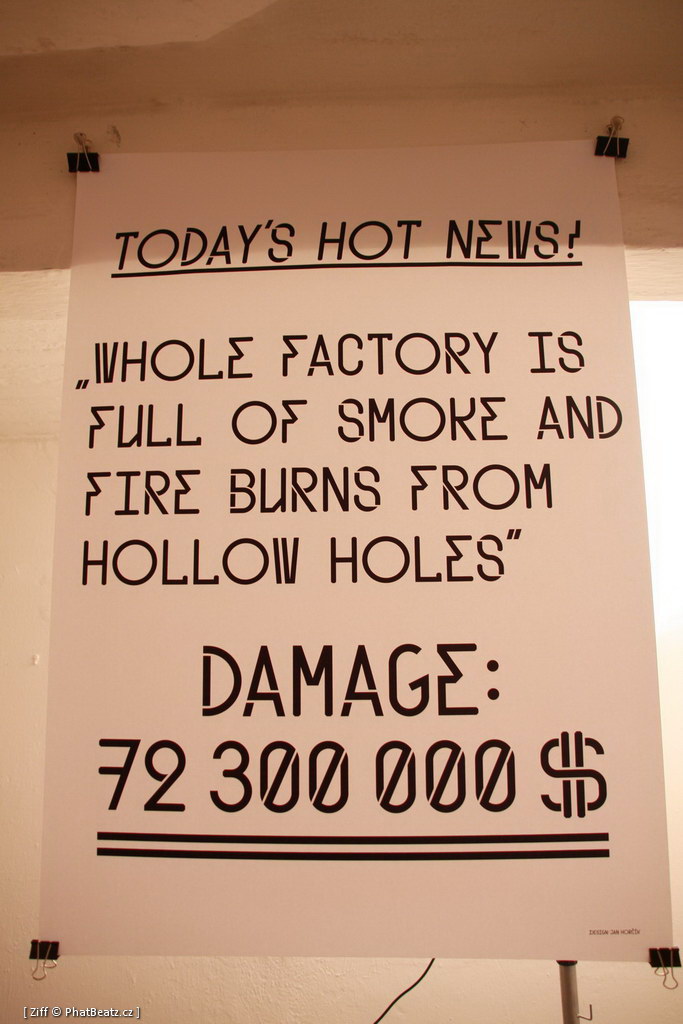 TODAY'S HOT NEWS!
„WHOLE FACTORY IS
FULL OF SMOKE AND
FIRE BURNS FROM
HOLLOW HOLES”
DAMAGE:
72 300 000 $
DESIGN JAN
[ Ziff © PhatBeatz.cz ]